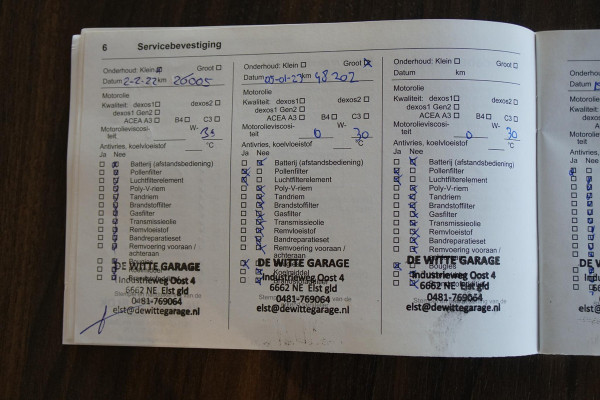 6 Servicebevestiging
Onderhoud: Klein Groot
Datum 2-2-22 km 20005
Motorolie
Kwaliteit: dexos1 dexos2
dexos1 Gen2
ACEA A3 B4 C3
Motorolieviscosi- W-
teit
Antivries, koelvloeistof °C
Ja Nee
Batterij (afstandsbediening)
Pollenfilter
Luchtfilterelement
Poly-V-riem
Tandriem
Brandstoffilter
Gasfilter
Transmissieolie
Remvloeistof
Bandreparatieset
Remvoering vooraan /
achteraan
DE WITTE GARAGE
Industrieweg Oost 4
6662 NE Elst gld
0481-769064
elst@dewittegarage.nl
Onderhoud: Klein Groot
Datum 09-01-23 km 48202
Motorolie
Kwaliteit: dexos1 dexos2
dexos1 Gen2
ACEA A3 B4 C3
Motorolieviscosi- W-
teit 0 30
Antivries, koelvloeistof °C
Ja Nee
Batterij (afstandsbediening)
Pollenfilter
Luchtfilterelement
Poly-V-riem
Tandriem
Brandstoffilter
Gasfilter
Transmissieolie
Remvloeistof
Bandreparatieset
Remvoering vooraan /
achteraan
DE WITTE GARAGE
Industrieweg Oost 4
6662 NE Elst gld
0481-769064
elst@dewittegarage.nl
Onderhoud: Klein Groot
Datum km
Motorolie
Kwaliteit: dexos1 dexos2
dexos1 Gen2
ACEA A3 B4 C3
Motorolieviscosi- W-
teit 0 30
Antivries, koelvloeistof °C
Ja Nee
Batterij (afstandsbediening)
Pollenfilter
Luchtfilterelement
Poly-V-riem
Tandriem
Brandstoffilter
Gasfilter
Transmissieolie
Remvloeistof
Bandreparatieset
Remvoering vooraan /
achteraan
Bougies
DE WITTE GARAGE
Industrieweg Oost 4
6662 NE Elst gld
0481-769064
elst@dewittegarage.nl